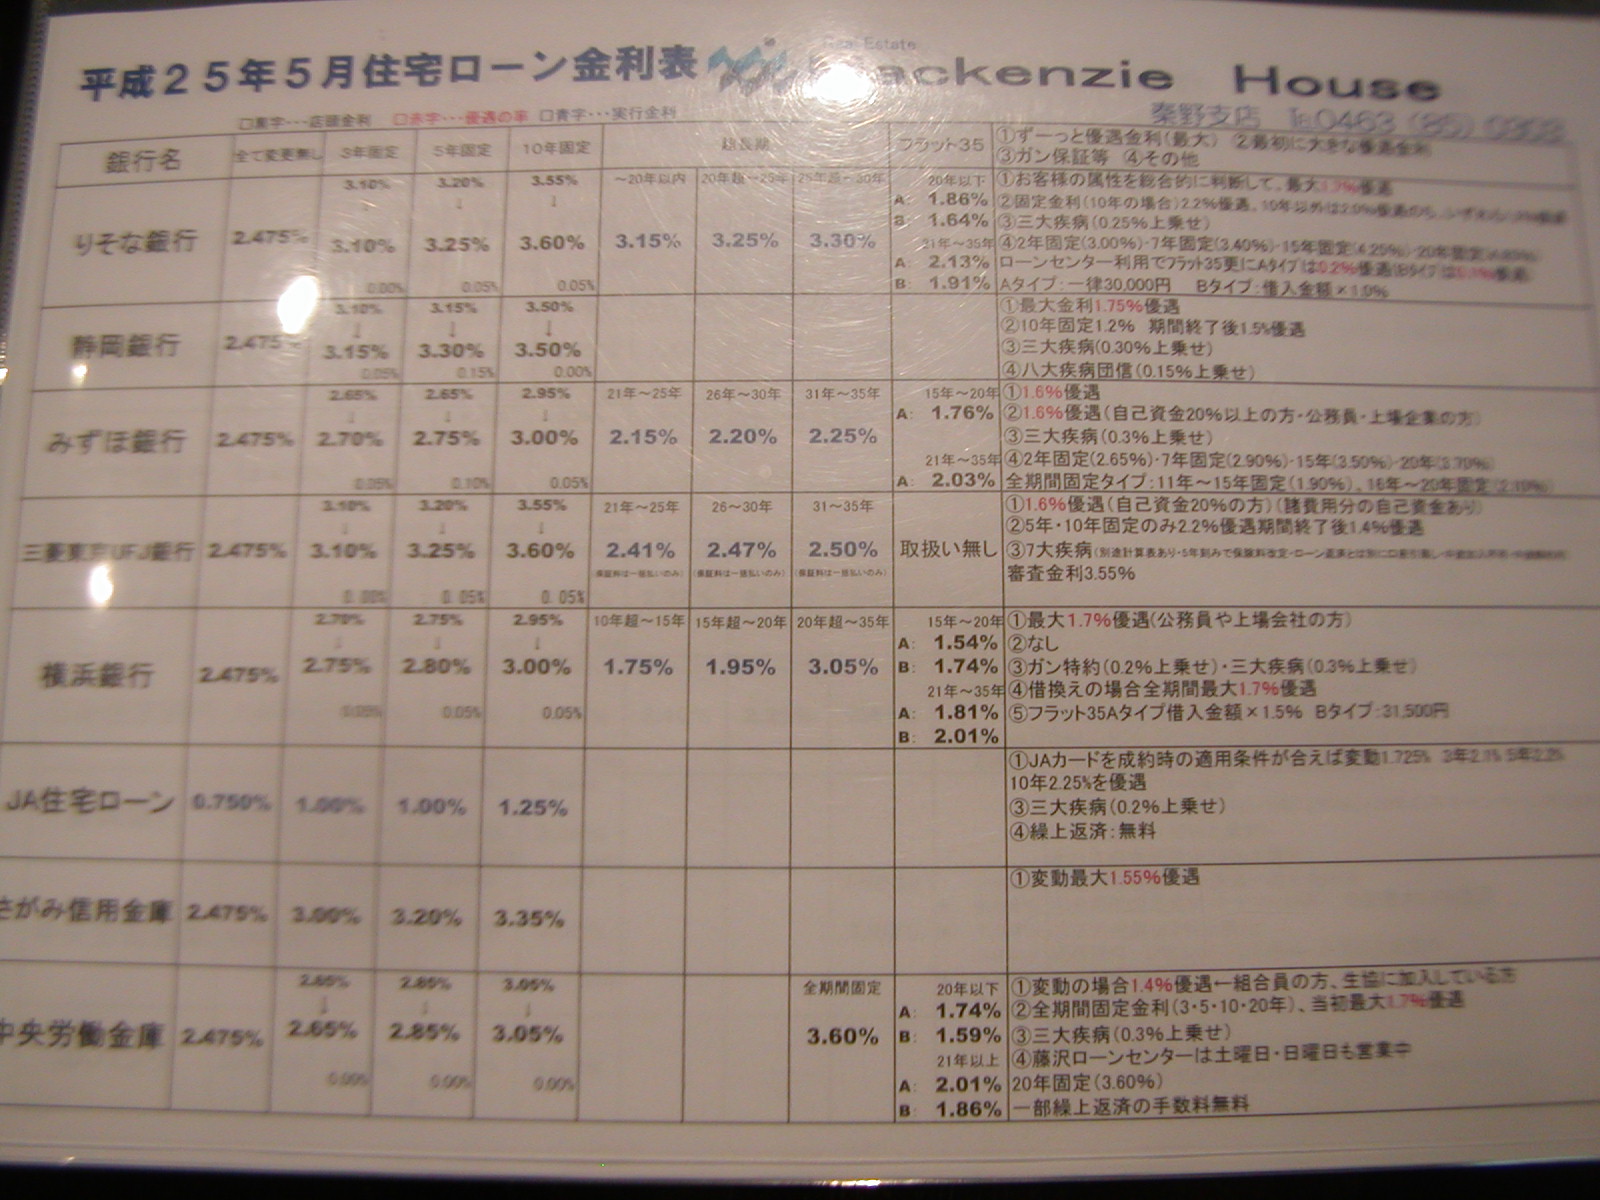 平成25年5月住宅ローン金利表
Real Estate
Mackenzie House
秦野支店 TEL0463 (85)
□黒字・・・店頭金利 □赤字・・・優遇の率 □青字・・・実行金利
銀行名 全て変更無し 3年固定 5年固定 10年固定 超長期 フラット35 ①ずーっと優遇金利(最大) ②最初に大きな優遇金利
③ガン保証等 ④その他
りそな銀行 2.475%
3.10% 3.20% 3.55%
↓ ↓ ↓
3.10% 3.25% 3.60%
0.00% 0.05% 0.05%
~20年以内 20年超~25年 25年超~30年
3.15% 3.25% 3.30%
20年以下
A: 1.86%
B: 1.64%
21年~35年
A: 2.13%
B: 1.91%
①お客様の属性を総合的に判断して、最大1.7%優遇
②固定金利(10年の場合)2.2%優遇、10年以外は2.0%優遇
③三大疾病(0.25%上乗せ)
④2年固定(3.00%)・7年固定(3.40%)・15年固定(4.20%)・20年固定
ローンセンター利用でフラット35更にAタイプは0.2%優遇(Bタイプは0.1%優遇)
Aタイプ:一律30,000円 Bタイプ:借入金額×1.0%
静岡銀行 2.475%
3.10% 3.15% 3.50%
↓ ↓ ↓
3.15% 3.30% 3.50%
0.05% 0.15% 0.00%
①最大金利1.75%優遇
②10年固定1.2% 期間終了後1.5%優遇
③三大疾病(0.30%上乗せ)
④八大疾病団信(0.15%上乗せ)
みずほ銀行 2.475%
2.65% 2.65% 2.95%
↓ ↓ ↓
2.70% 2.75% 3.00%
0.05% 0.10% 0.05%
21年~25年 26年~30年 31年~35年
2.15% 2.20% 2.25%
15年~20年
A: 1.76%
21年~35年
A: 2.03%
①1.6%優遇
②1.6%優遇(自己資金20%以上の方・公務員・上場企業の方)
③三大疾病(0.3%上乗せ)
④2年固定(2.65%)・7年固定(2.90%)・15年(3.50%)・20年(3.70%)
全期間固定タイプ:11年~15年固定(1.90%)、16年~20年固定(2.10%)
三菱東京UFJ銀行 2.475%
3.10% 3.20% 3.55%
↓ ↓ ↓
3.10% 3.25% 3.60%
0.00% 0.05% 0.05%
21年~25年 26~30年 31~35年
2.41% 2.47% 2.50%
(保証料は一括払いのみ) (保証料は一括払いのみ) (保証料は一括払いのみ)
取扱い無し
①1.6%優遇(自己資金20%の方)(諸費用分の自己資金あり)
②5年・10年固定のみ2.2%優遇期間終了後1.4%優遇
③7大疾病(別途計算表あり・5年刻みで保険料改定・ローン返済とは別に口座引落し
審査金利3.55%
横浜銀行 2.475%
2.70% 2.75% 2.95%
↓ ↓ ↓
2.75% 2.80% 3.00%
0.05% 0.05% 0.05%
10年超~15年 15年超~20年 20年超~35年
1.75% 1.95% 3.05%
15年~20年
A: 1.54%
B: 1.74%
21年~35年
A: 1.81%
B: 2.01%
①最大1.7%優遇(公務員や上場会社の方)
②なし
③ガン特約(0.2%上乗せ)・三大疾病(0.3%上乗せ)
④借換えの場合全期間最大1.7%優遇
⑤フラット35Aタイプ借入金額×1.5% Bタイプ:31,500円
JA住宅ローン 0.750% 1.00% 1.00% 1.25%
①JAカードを成約時の適用条件が合えば変動1.725% 3年2.1% 5年2.25
10年2.25%を優遇
③三大疾病(0.2%上乗せ)
④繰上返済:無料
さがみ信用金庫 2.475% 3.00% 3.20% 3.35%
①変動最大1.55%優遇
中央労働金庫 2.475%
2.65% 2.85% 3.05%
↓ ↓ ↓
2.65% 2.85% 3.05%
0.00% 0.00% 0.00%
全期間固定
3.60%
20年以下
A: 1.74%
B: 1.59%
21年以上
A: 2.01%
B: 1.86%
①変動の場合1.4%優遇←組合員の方、生協に加入している方
②全期間固定金利(3・5・10・20年)、当初最大1.7%優遇
③三大疾病(0.3%上乗せ)
④藤沢ローンセンターは土曜日・日曜日も営業中
20年固定(3.60%)
一部繰上返済の手数料無料